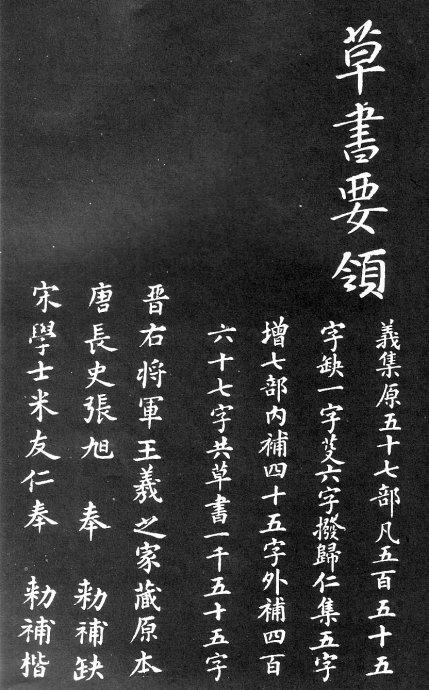 草書要領
義集原五十七部凡五百五十五
字缺一字芟六字撥歸仁集五字
增七部內補四十五字外補四百
六十七字共草書一千五十五字
晋右将軍王羲之家藏原本
唐長史張旭 奉 勑補缺
宋學士米友仁奉 勑補楷